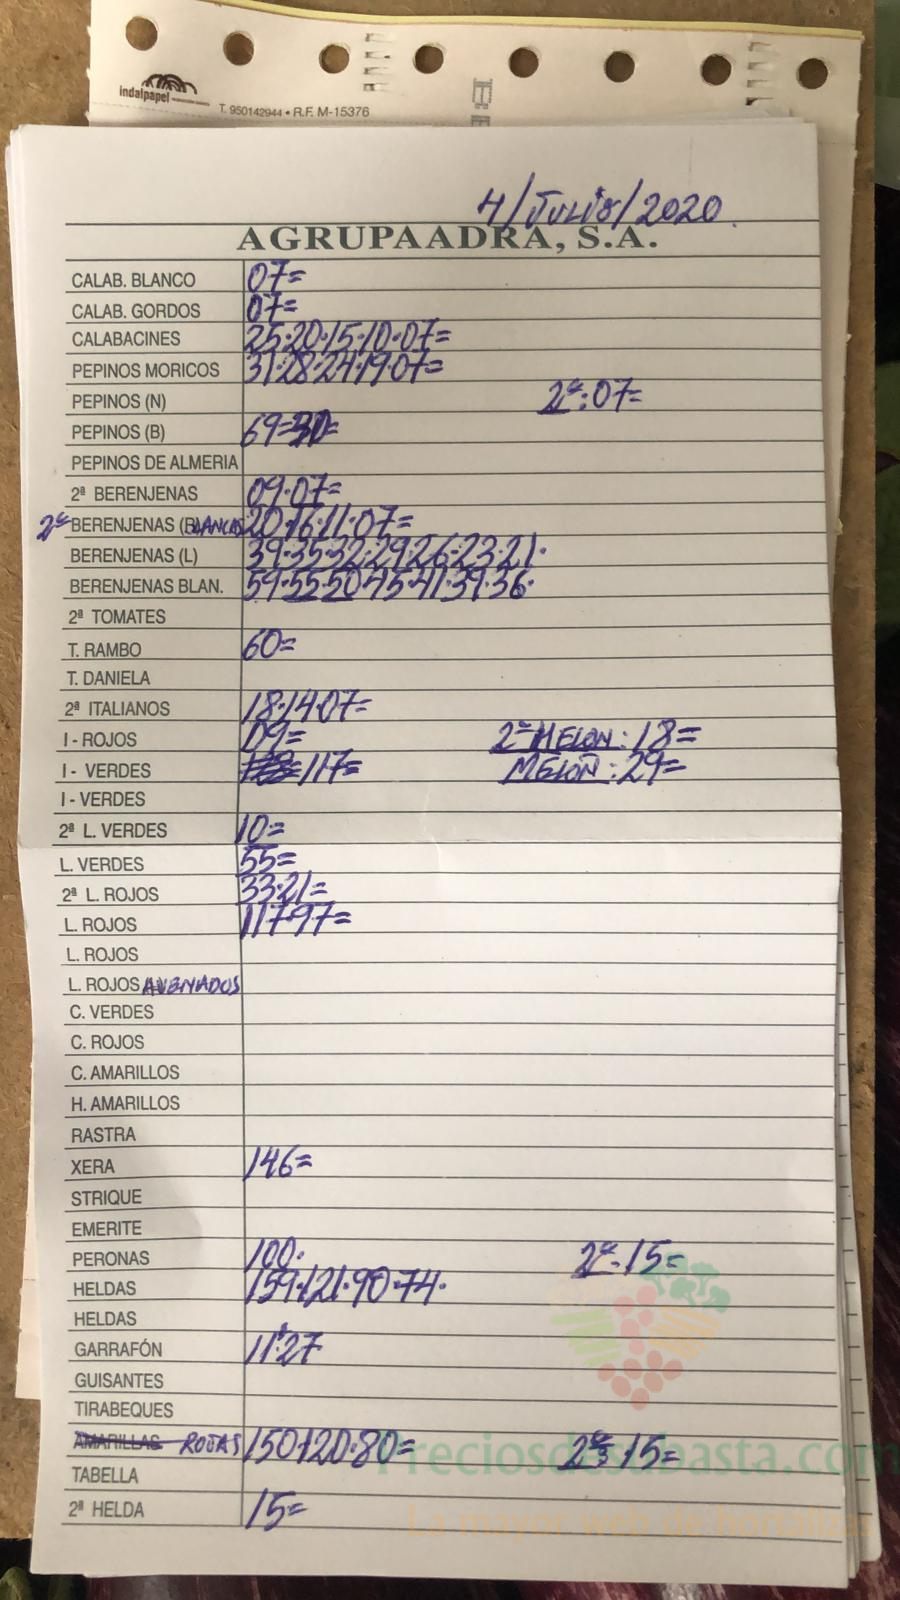 indalpapel
T. 950142944 • R.F. M-15376
4/JULIO/2020
AGRUPAADRA, S.A.
CALAB. BLANCO 07=
CALAB. GORDOS 07=
CALABACINES 25·20·15·10·07=
PEPINOS MORICOS 31·28·24·19·07=
PEPINOS (N) 2ª:07=
PEPINOS (B) 69=30=
PEPINOS DE ALMERIA
2ª BERENJENAS 09·07=
2ª BERENJENAS (BLANCAS 20·16·11·07=
BERENJENAS (L) 39·35·32·29·26·23·21·
BERENJENAS BLAN. 59·55·50·45·41·39·36·
2ª TOMATES
T. RAMBO 60=
T. DANIELA
2ª ITALIANOS 18·14·07=
I - ROJOS 09= 2ª MELON: 18=
I - VERDES 117= MELON: 29=
I - VERDES
2ª L. VERDES 10=
L. VERDES 55=
2ª L. ROJOS 33·21=
L. ROJOS 117·97=
L. ROJOS
L. ROJOS AVENADOS
C. VERDES
C. ROJOS
C. AMARILLOS
H. AMARILLOS
RASTRA
XERA 146=
STRIQUE
EMERITE
PERONAS 100· 2ª·15=
HELDAS 159·121·90·74·
HELDAS
GARRAFÓN 11'27
GUISANTES
TIRABEQUES
AMARILLAS ROJAS 150·120·80= 2ªs 15=
Preciosdesubasta.com
TABELLA
2ª HELDA 15=
La mayor web de hortalizas